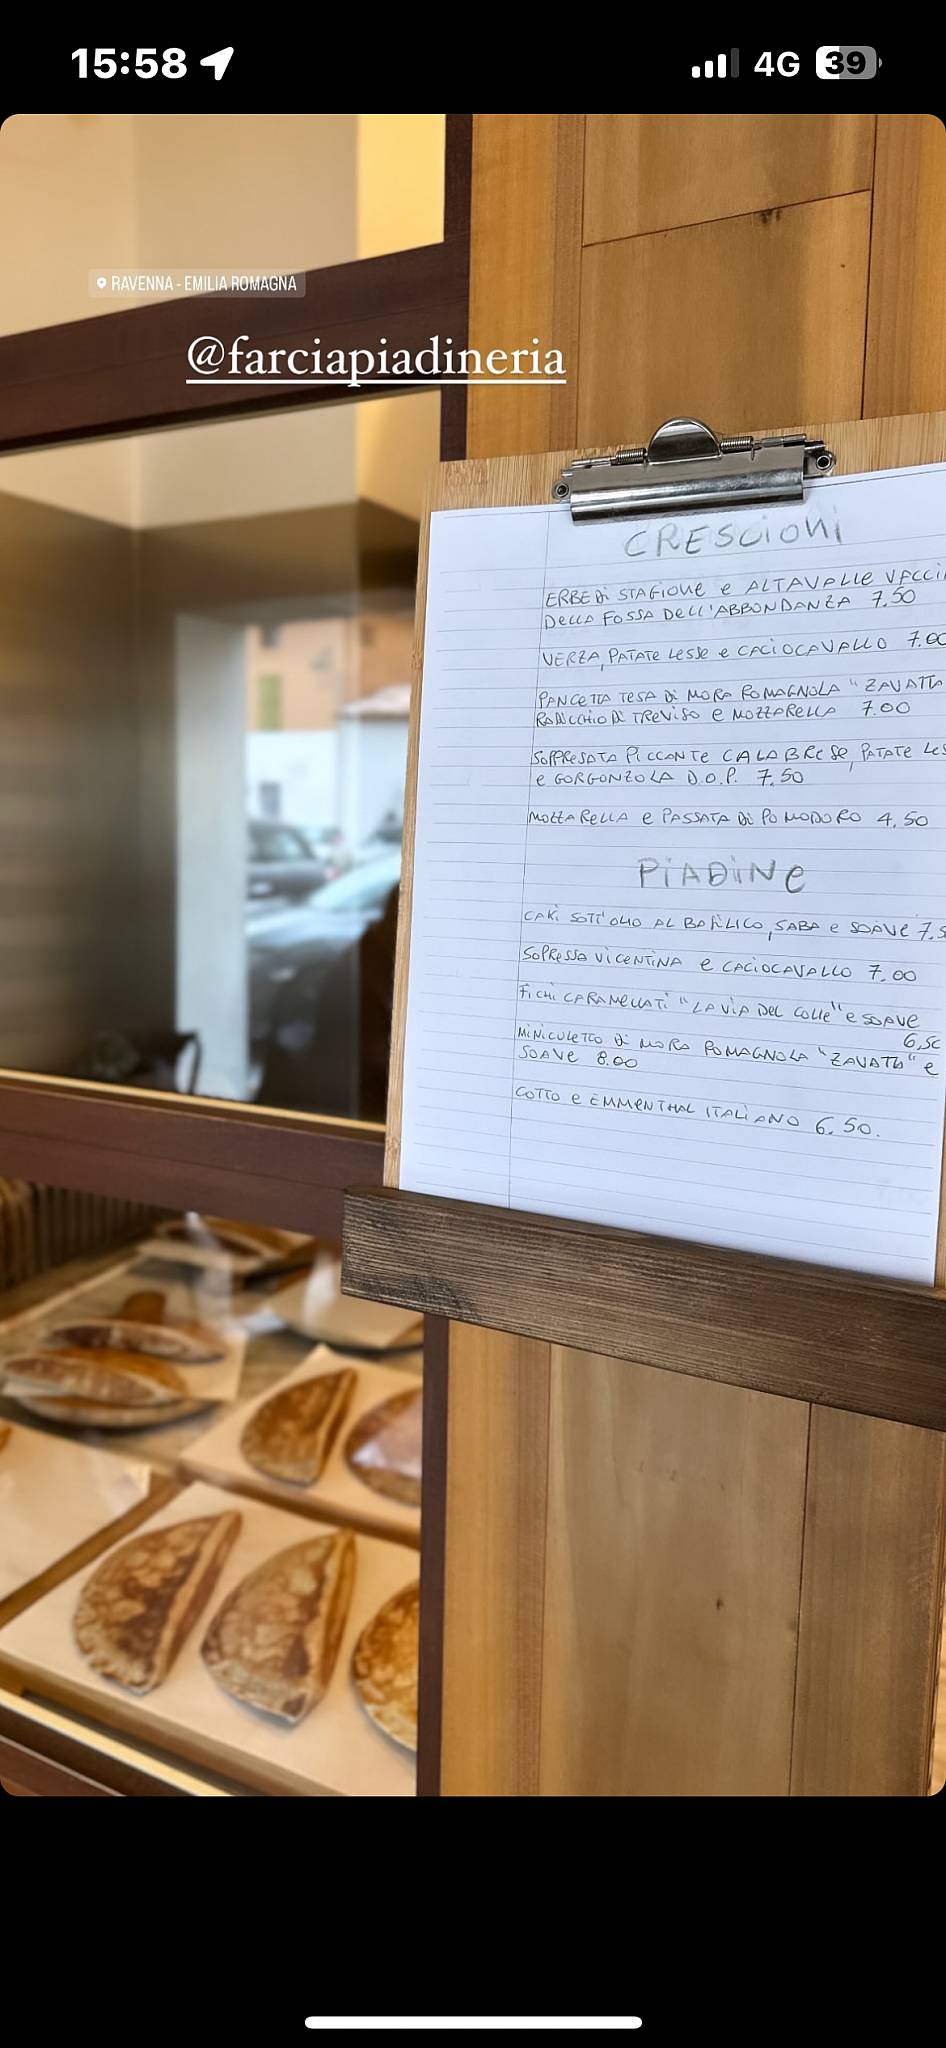 15:58
4G
39
RAVENNA - EMILIA ROMAGNA
@farciapiadineria
CRESCIONI
ERBE DI STAGIONE e ALTAVALLE VACCI
DELLA FOSSA DELL'ABBONDANZA 7.50
VERZA, PATATE LESSE e CACIOCAVALLO 7.00
PANCETTA TESA DI MORA ROMAGNOLA "ZAVATTA
RADICCHIO DI TREVISO e MOZZARELLA 7.00
SOPPRESATA PICCANTE CALABRESE, PATATE LES
e GORGONZOLA D.O.P. 7.50
MOZZARELLA e PASSATA DI POMODORO 4.50
PIADINE
CAKI SOTT'OLIO AL BASILICO, SABA e SOAVE 7.5
SOPRESSA VICENTINA e CACIOCAVALLO 7.00
FICHI CARAMELLATI "LA VIA DEL COLLE" e SOAVE
6,50
MINICULETTO DI MORA ROMAGNOLA "ZAVATTA" e
SOAVE 8.00
COTTO e EMMENTHAL ITALIANO 6.50.